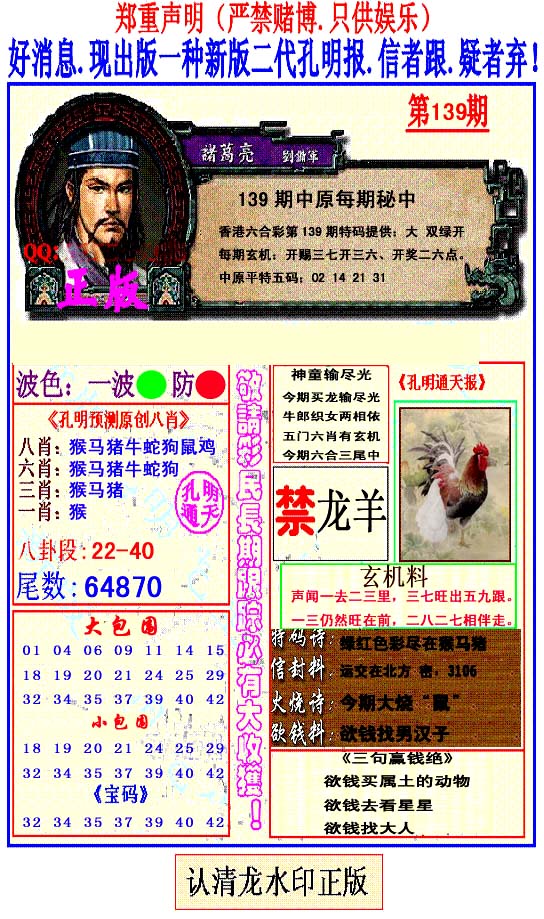 郑重声明（严禁赌博.只供娱乐）
好消息.现出版一种新版二代孔明报.信者跟.疑者弃!
第139期
諸葛亮 劉備軍
139 期中原每期秘中
香港六合彩第 139 期特码提供：大 双绿开
每期玄机：开赐三七开三六、开奖二六点。
中原平特五码：02 14 21 31
QQ:
正版
波色：一波 防
《孔明预测原创八肖》
八肖：猴马猪牛蛇狗鼠鸡
六肖：猴马猪牛蛇狗
三肖：猴马猪
一肖：猴
孔明
通天
八卦段：22-40
尾数：64870
大包围
01 04 06 09 11 14 15
18 19 20 21 24 25 29
32 34 35 37 39 40 42
小包围
18 19 20 21 24 25 29
32 34 35 37 39 40 42
《宝码》
32 34 35 37 39 40 42
敬請彩民長期跟踪必有大收獲！
神童输尽光
今期买龙输尽光
牛郎织女两相依
五门六肖有玄机
今期六合三尾中
《孔明通天报》
禁龙羊
玄机料
声闻一去二三里，三七旺出五九跟。
一三仍然旺在前，二八二七相伴走。
特码诗：绿红色彩尽在猴马猪
信封料：运交在北方 密．3106
火烧诗：今期大烧“鼠”
欲钱料：欲钱找男汉子
《三句赢钱绝》
欲钱买属土的动物
欲钱去看星星
欲钱找大人
认清龙水印正版